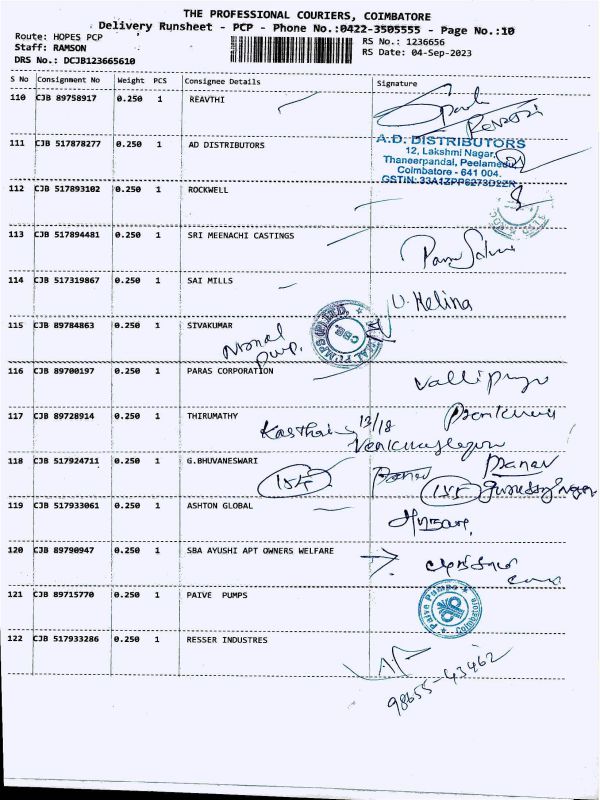 THE PROFESSIONAL COURIERS, COIMBATORE
Delivery Runsheet - PCP - Phone No.:0422-3505555 - Page No.:10
Route: HOPES PCP
RS No.: 1236656
Staff: RAMSON
RS Date: 04-Sep-2023
DRS No.: DCJB123665610
S No Consignment No Weight PCS Consignee Details Signature
110 CJB 89758917 0.250 1 REAVTHI
111 CJB 517878277 0.250 1 AD DISTRIBUTORS
A.D. DISTRIBUTORS
12, Lakshmi Nagar,
Thaneerpandal, Peelamedu,
Coimbatore - 641 004.
112 CJB 517893102 0.250 1 ROCKWELL
113 CJB 517894481 0.250 1 SRI MEENACHI CASTINGS
114 CJB 517319867 0.250 1 SAI MILLS
U. Helina
115 CJB 89784863 0.250 1 SIVAKUMAR
116 CJB 89700197 0.250 1 PARAS CORPORATION
117 CJB 89728914 0.250 1 THIRUMATHY
13/18
118 CJB 517924711 0.250 1 G.BHUVANESWARI
119 CJB 517933061 0.250 1 ASHTON GLOBAL
120 CJB 89790947 0.250 1 SBA AYUSHI APT OWNERS WELFARE
121 CJB 89715770 0.250 1 PAIVE PUMPS
Paive Pumps
Coimbatore
122 CJB 517933286 0.250 1 RESSER INDUSTRES
98655-43462